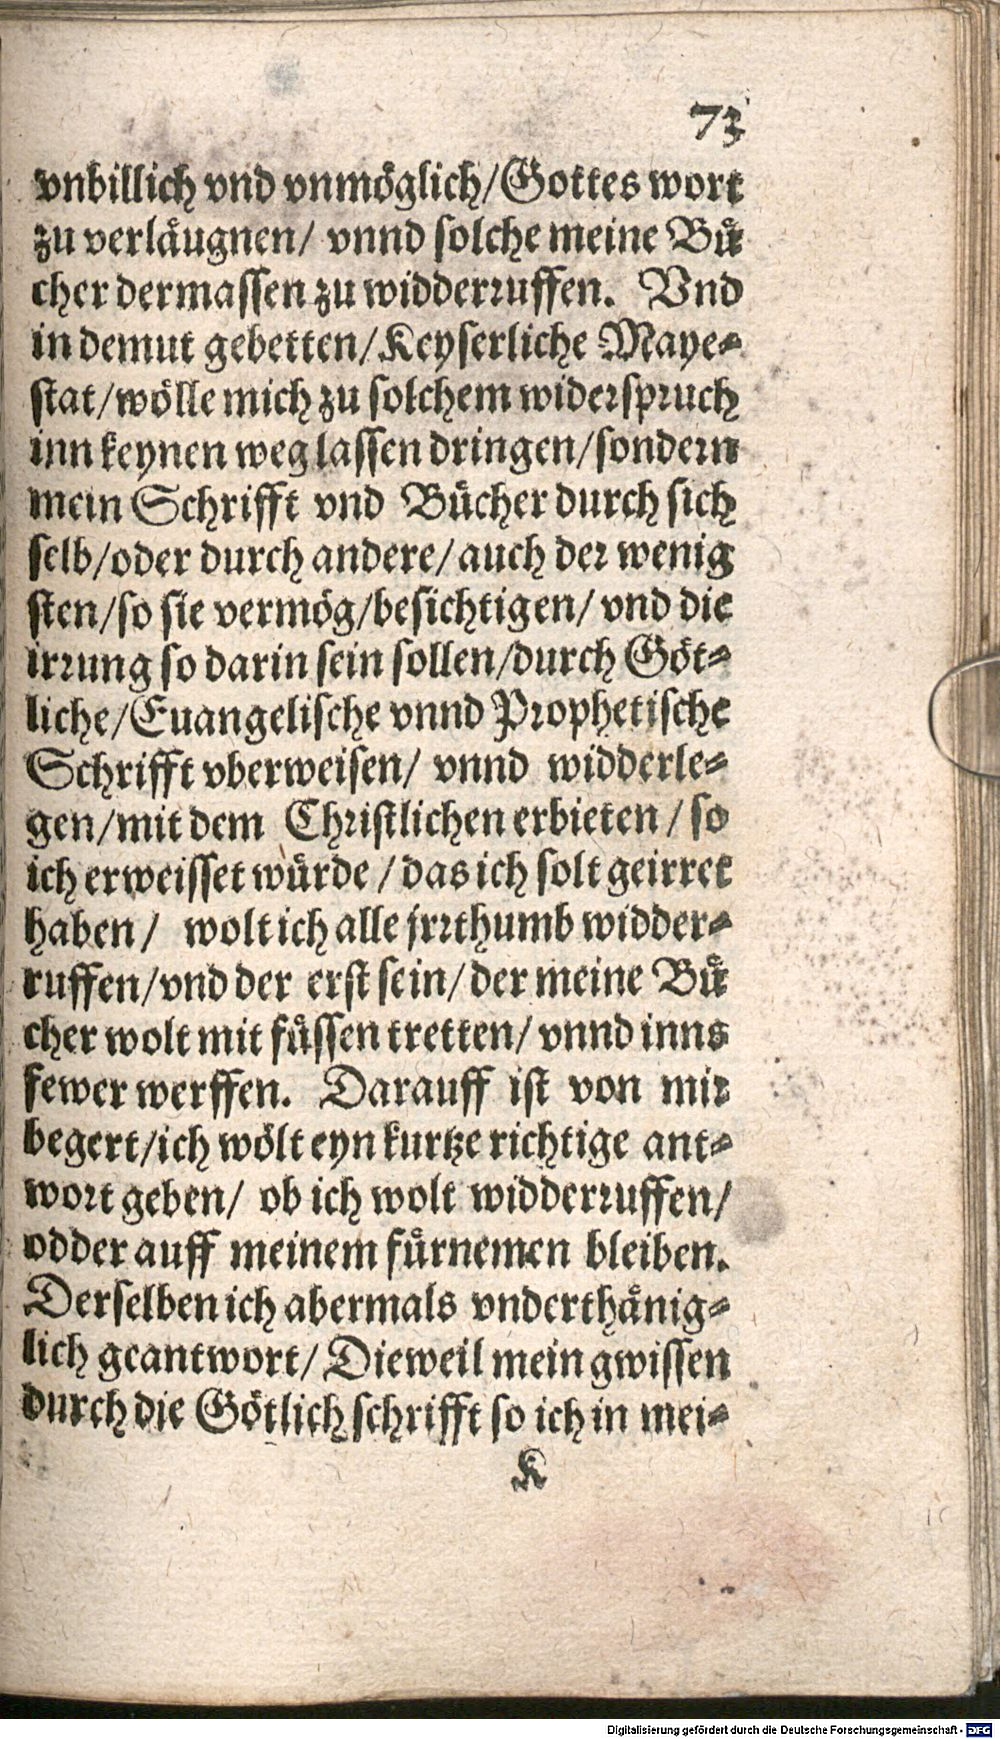 73
vnbillich vnd vnmöglich/Gottes wort
zu verläugnen/ vnnd solche meine Bü
cher dermassen zu widderruffen. Vnd
in demut gebetten/Keyserliche Maye-
stat/wölle mich zu solchem widerspruch
inn keynen weg lassen dringen/sondern
mein Schrifft vnd Bücher durch sich
selb/oder durch andere/auch der wenig
sten/so sie vermög/besichtigen/ vnd die
irrung so darin sein sollen/durch Göt-
liche/Euangelische vnnd Prophetische
Schrifft vberweisen/ vnnd widderle-
gen/mit dem Christlichen erbieten/ so
ich erweisset würde/das ich solt geirret
haben/ wolt ich alle jrrthumb widder-
ruffen/vnd der erst sein/der meine Bü
cher wolt mit füssen tretten/ vnnd inns
fewer werffen. Darauff ist von mir
begert/ich wölt eyn kurtze richtige ant-
wort geben/ ob ich wolt widderruffen/
odder auff meinem fürnemen bleiben.
Derselben ich abermals vnderthänig-
lich geantwort/ Dieweil mein gwissen
durch die Götlich schrifft so ich in mei-
K
Digitalisierung gefördert durch die Deutsche Forschungsgemeinschaft - DFG